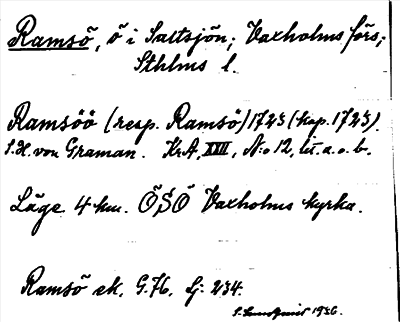 Ramsö, ö i Saltsjön; Vaxholms förs;
Sthlms l.
Ramsöö (resp. Ramsö) 1723 (kop. 1723).
S.H. von Graman. Kr.A, XXII, N:o 12, lit. a. o. b.
Läge 4 km. ÖSÖ Vaxholms kyrka.
Ramsö ek. G.76. Lj: 234.
S. Lundqvist 1936.